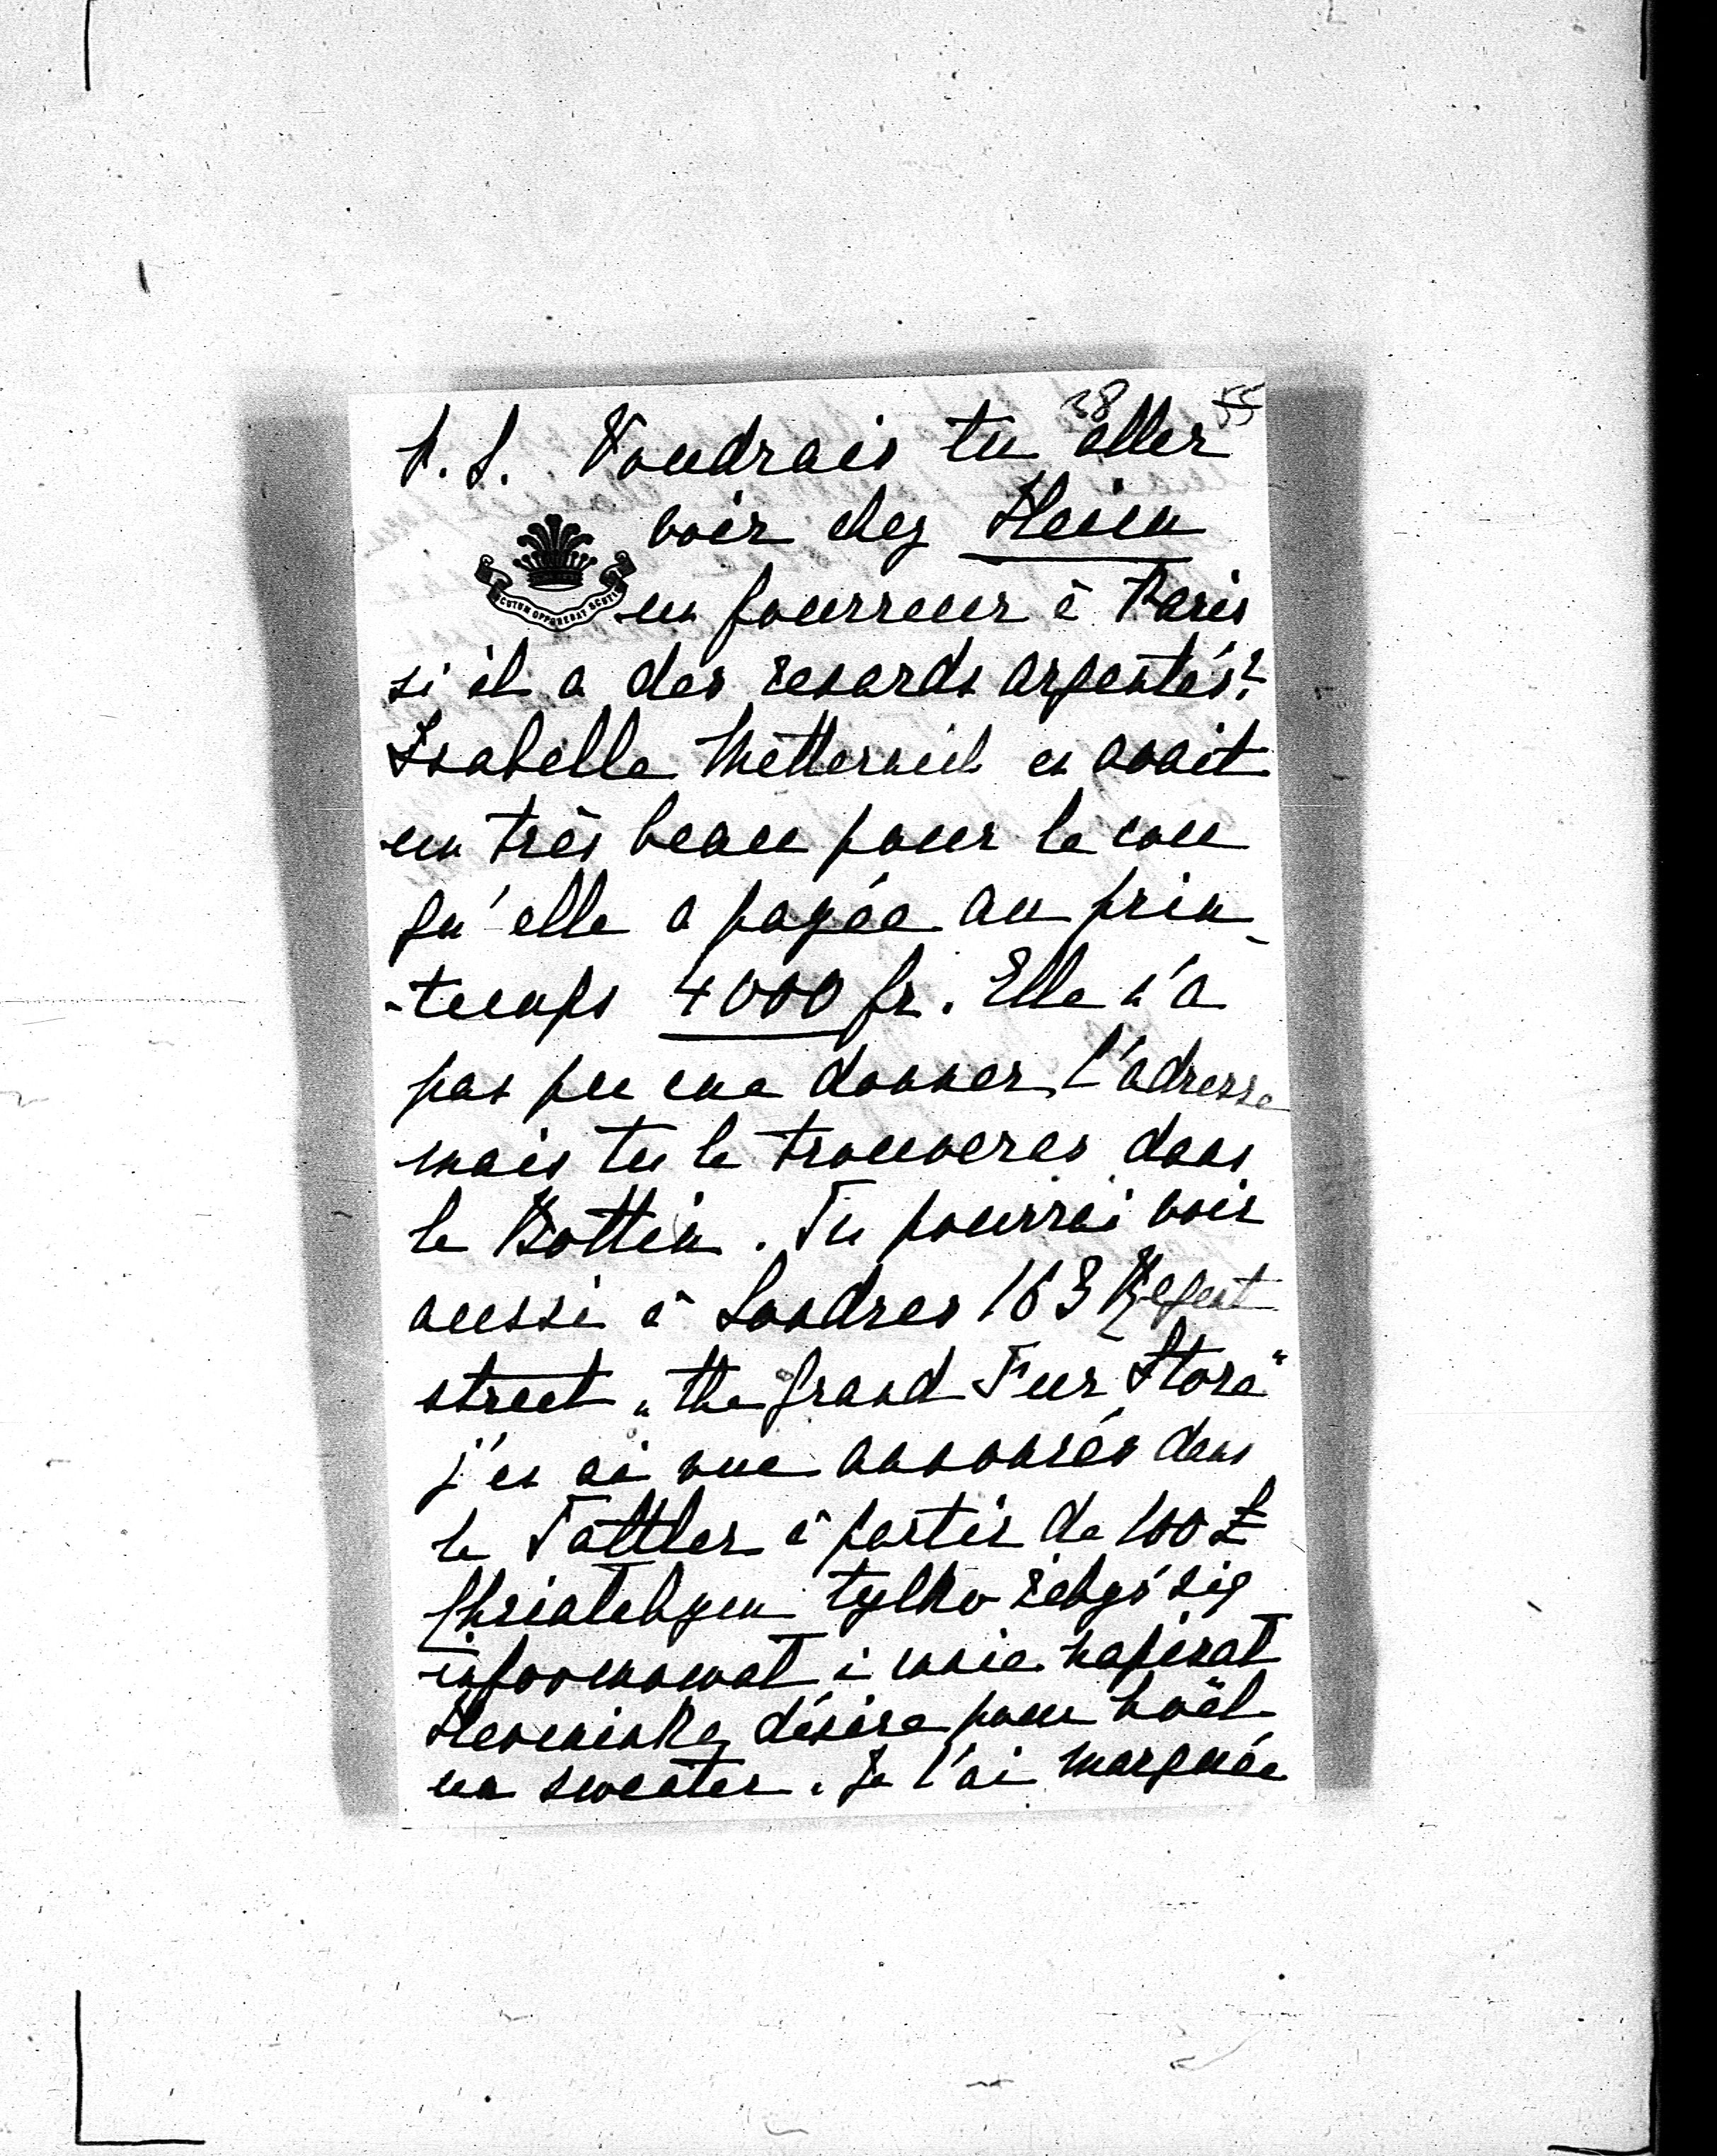 38 55
P.S. Voudrais tu aller
voir chez Heim
SCUTUM OPPONEBAT SCUTIS
un fourreur à Paris
si il a des renards argentés?
Isabelle Metternich en avait
un très beau pour le cou
qu'elle a payée au prin-
-temps 4000 fr. Elle n'a
pas pu me donner l'adresse
mais tu le trouveras dans
le Bottin. Tu pourrai voir
aussi à Londres 163 Regent
street „the Grand Fur Store"
j'en ai vue annoncés dans
le Tattler à partir de 100 £
Chciałabym tylko żebyś się
informował i mnie napisał
désire pour Noël
un sweater. Je l'ai marquée